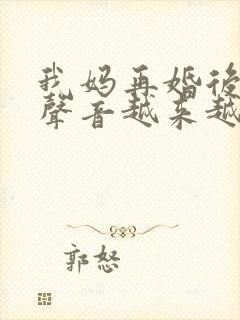 我妈再婚後
聲音越来越
郭怒